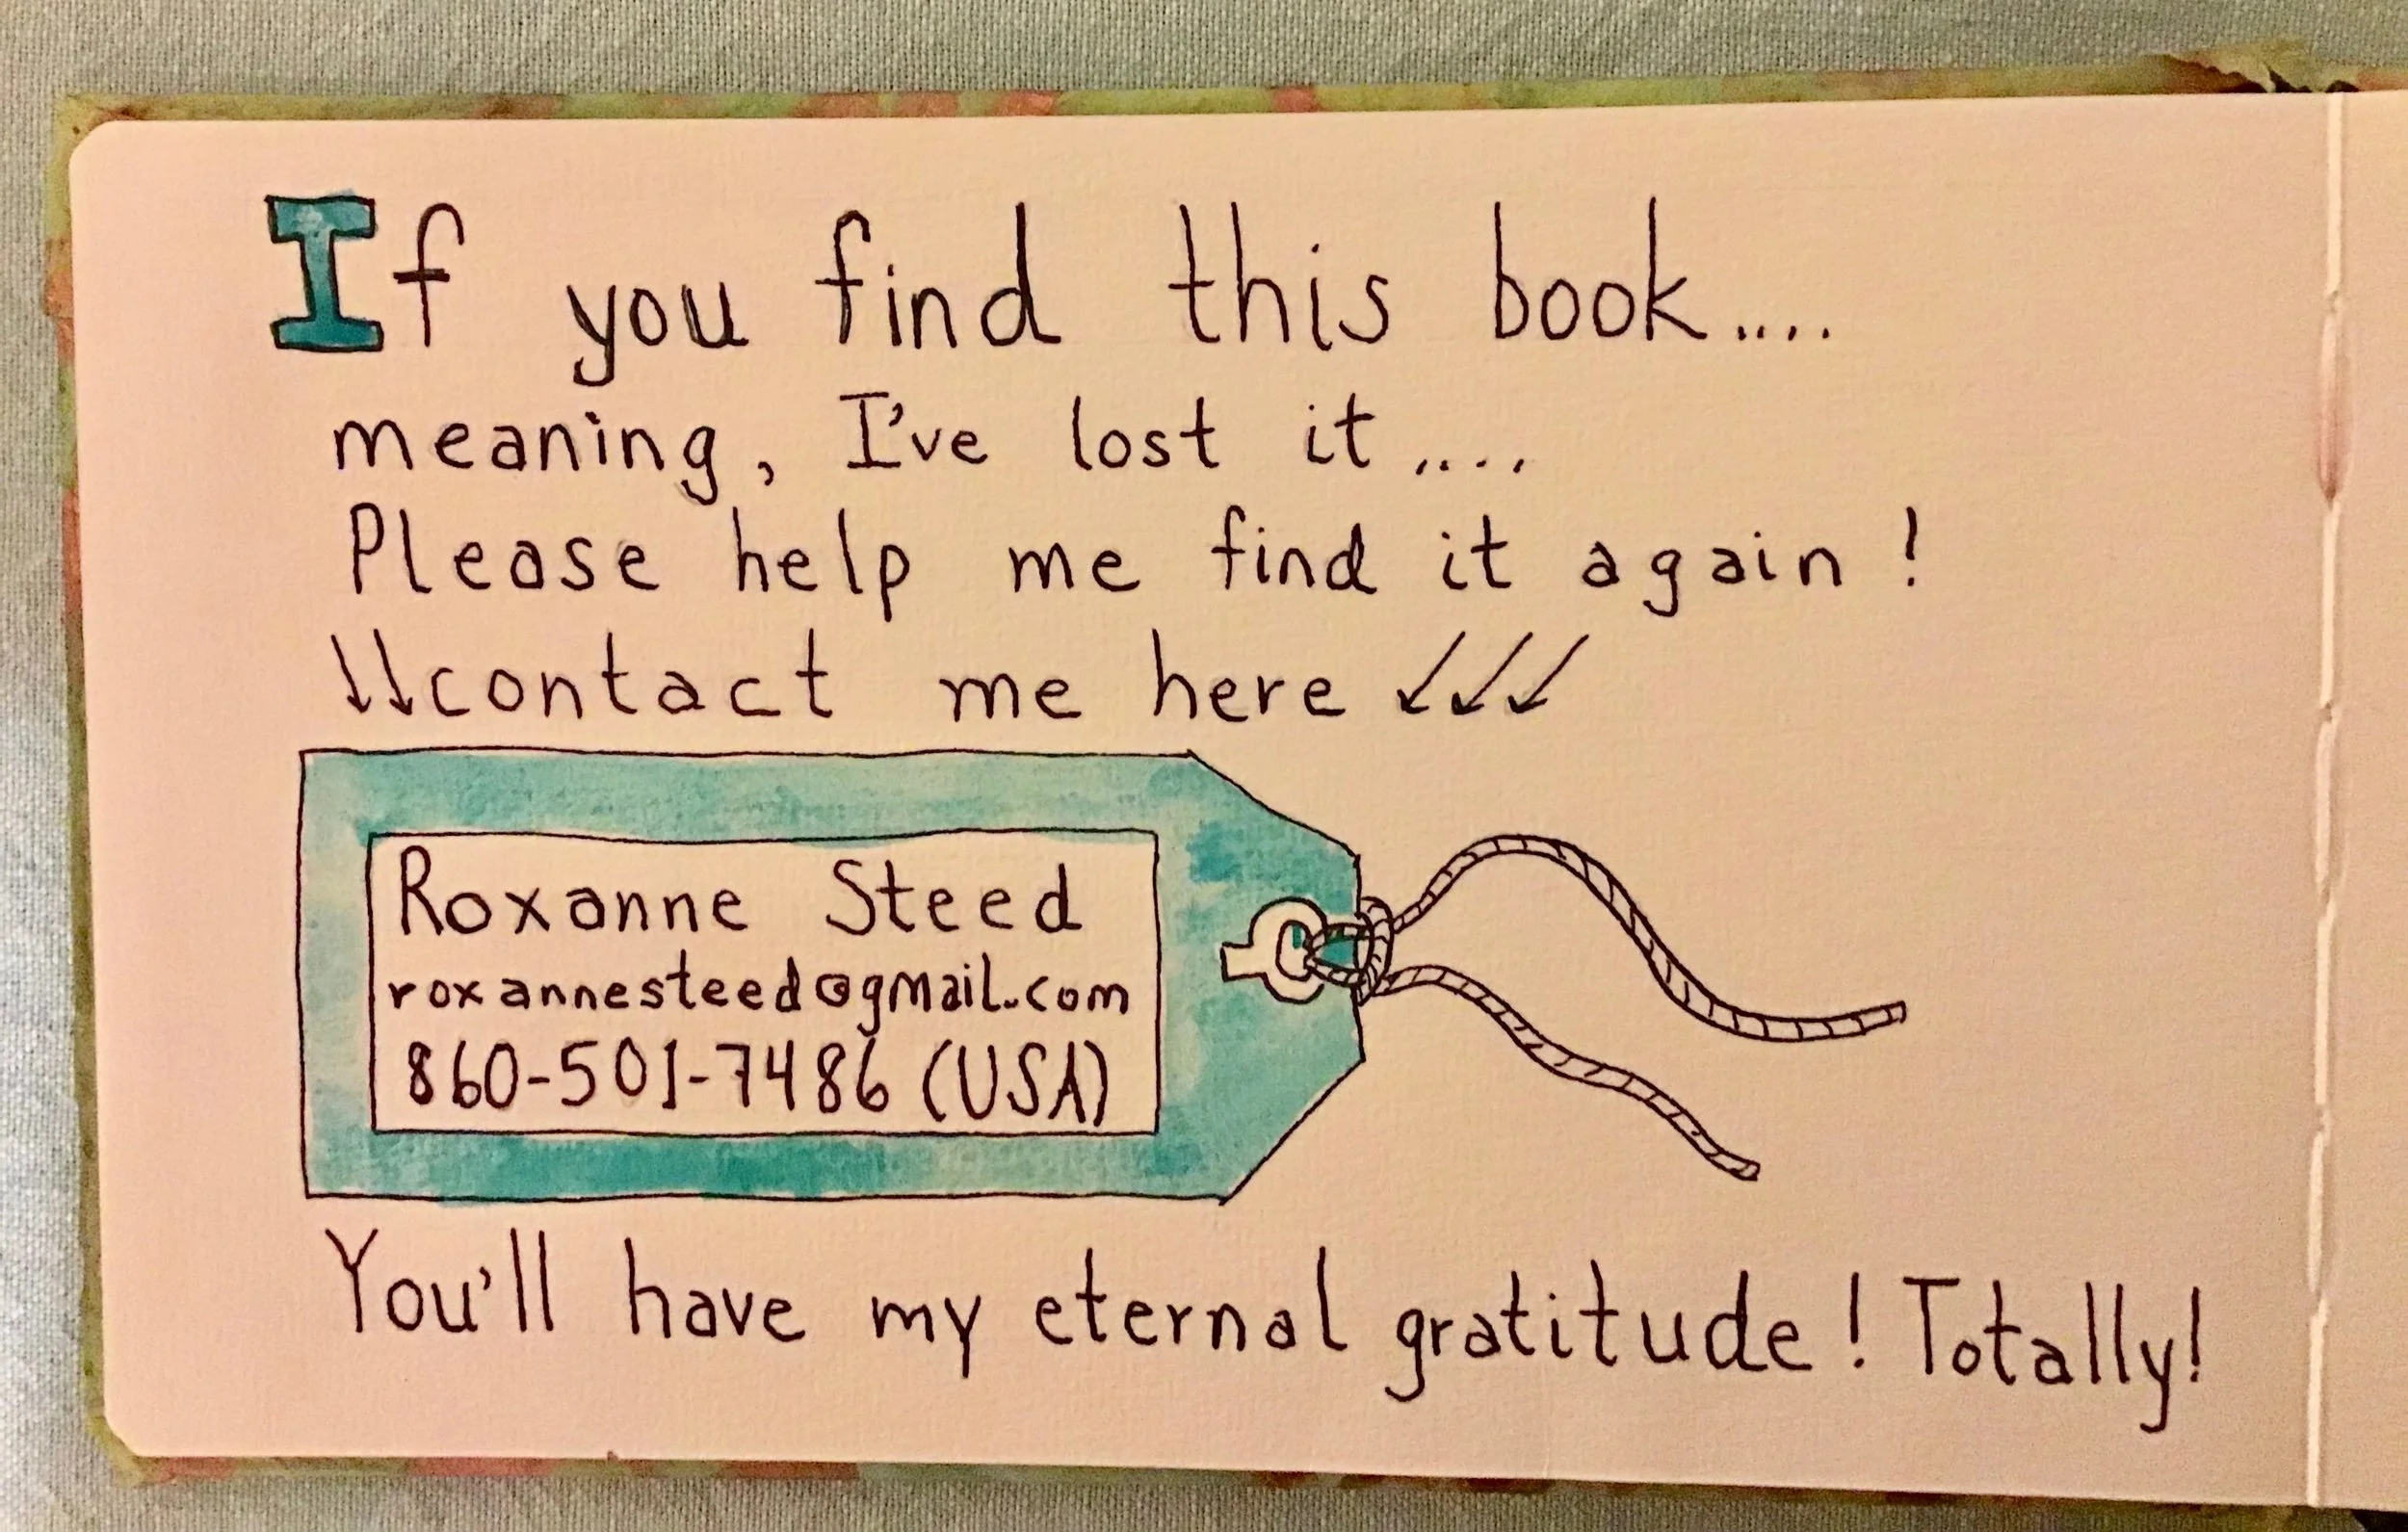 If you find this book....
meaning, I've lost it....
Please help me find it again!
↓↓contact me here ↙↙↙
Roxanne Steed
roxannesteed@gmail.com
860-501-7486 (USA)
You'll have my eternal gratitude! Totally!